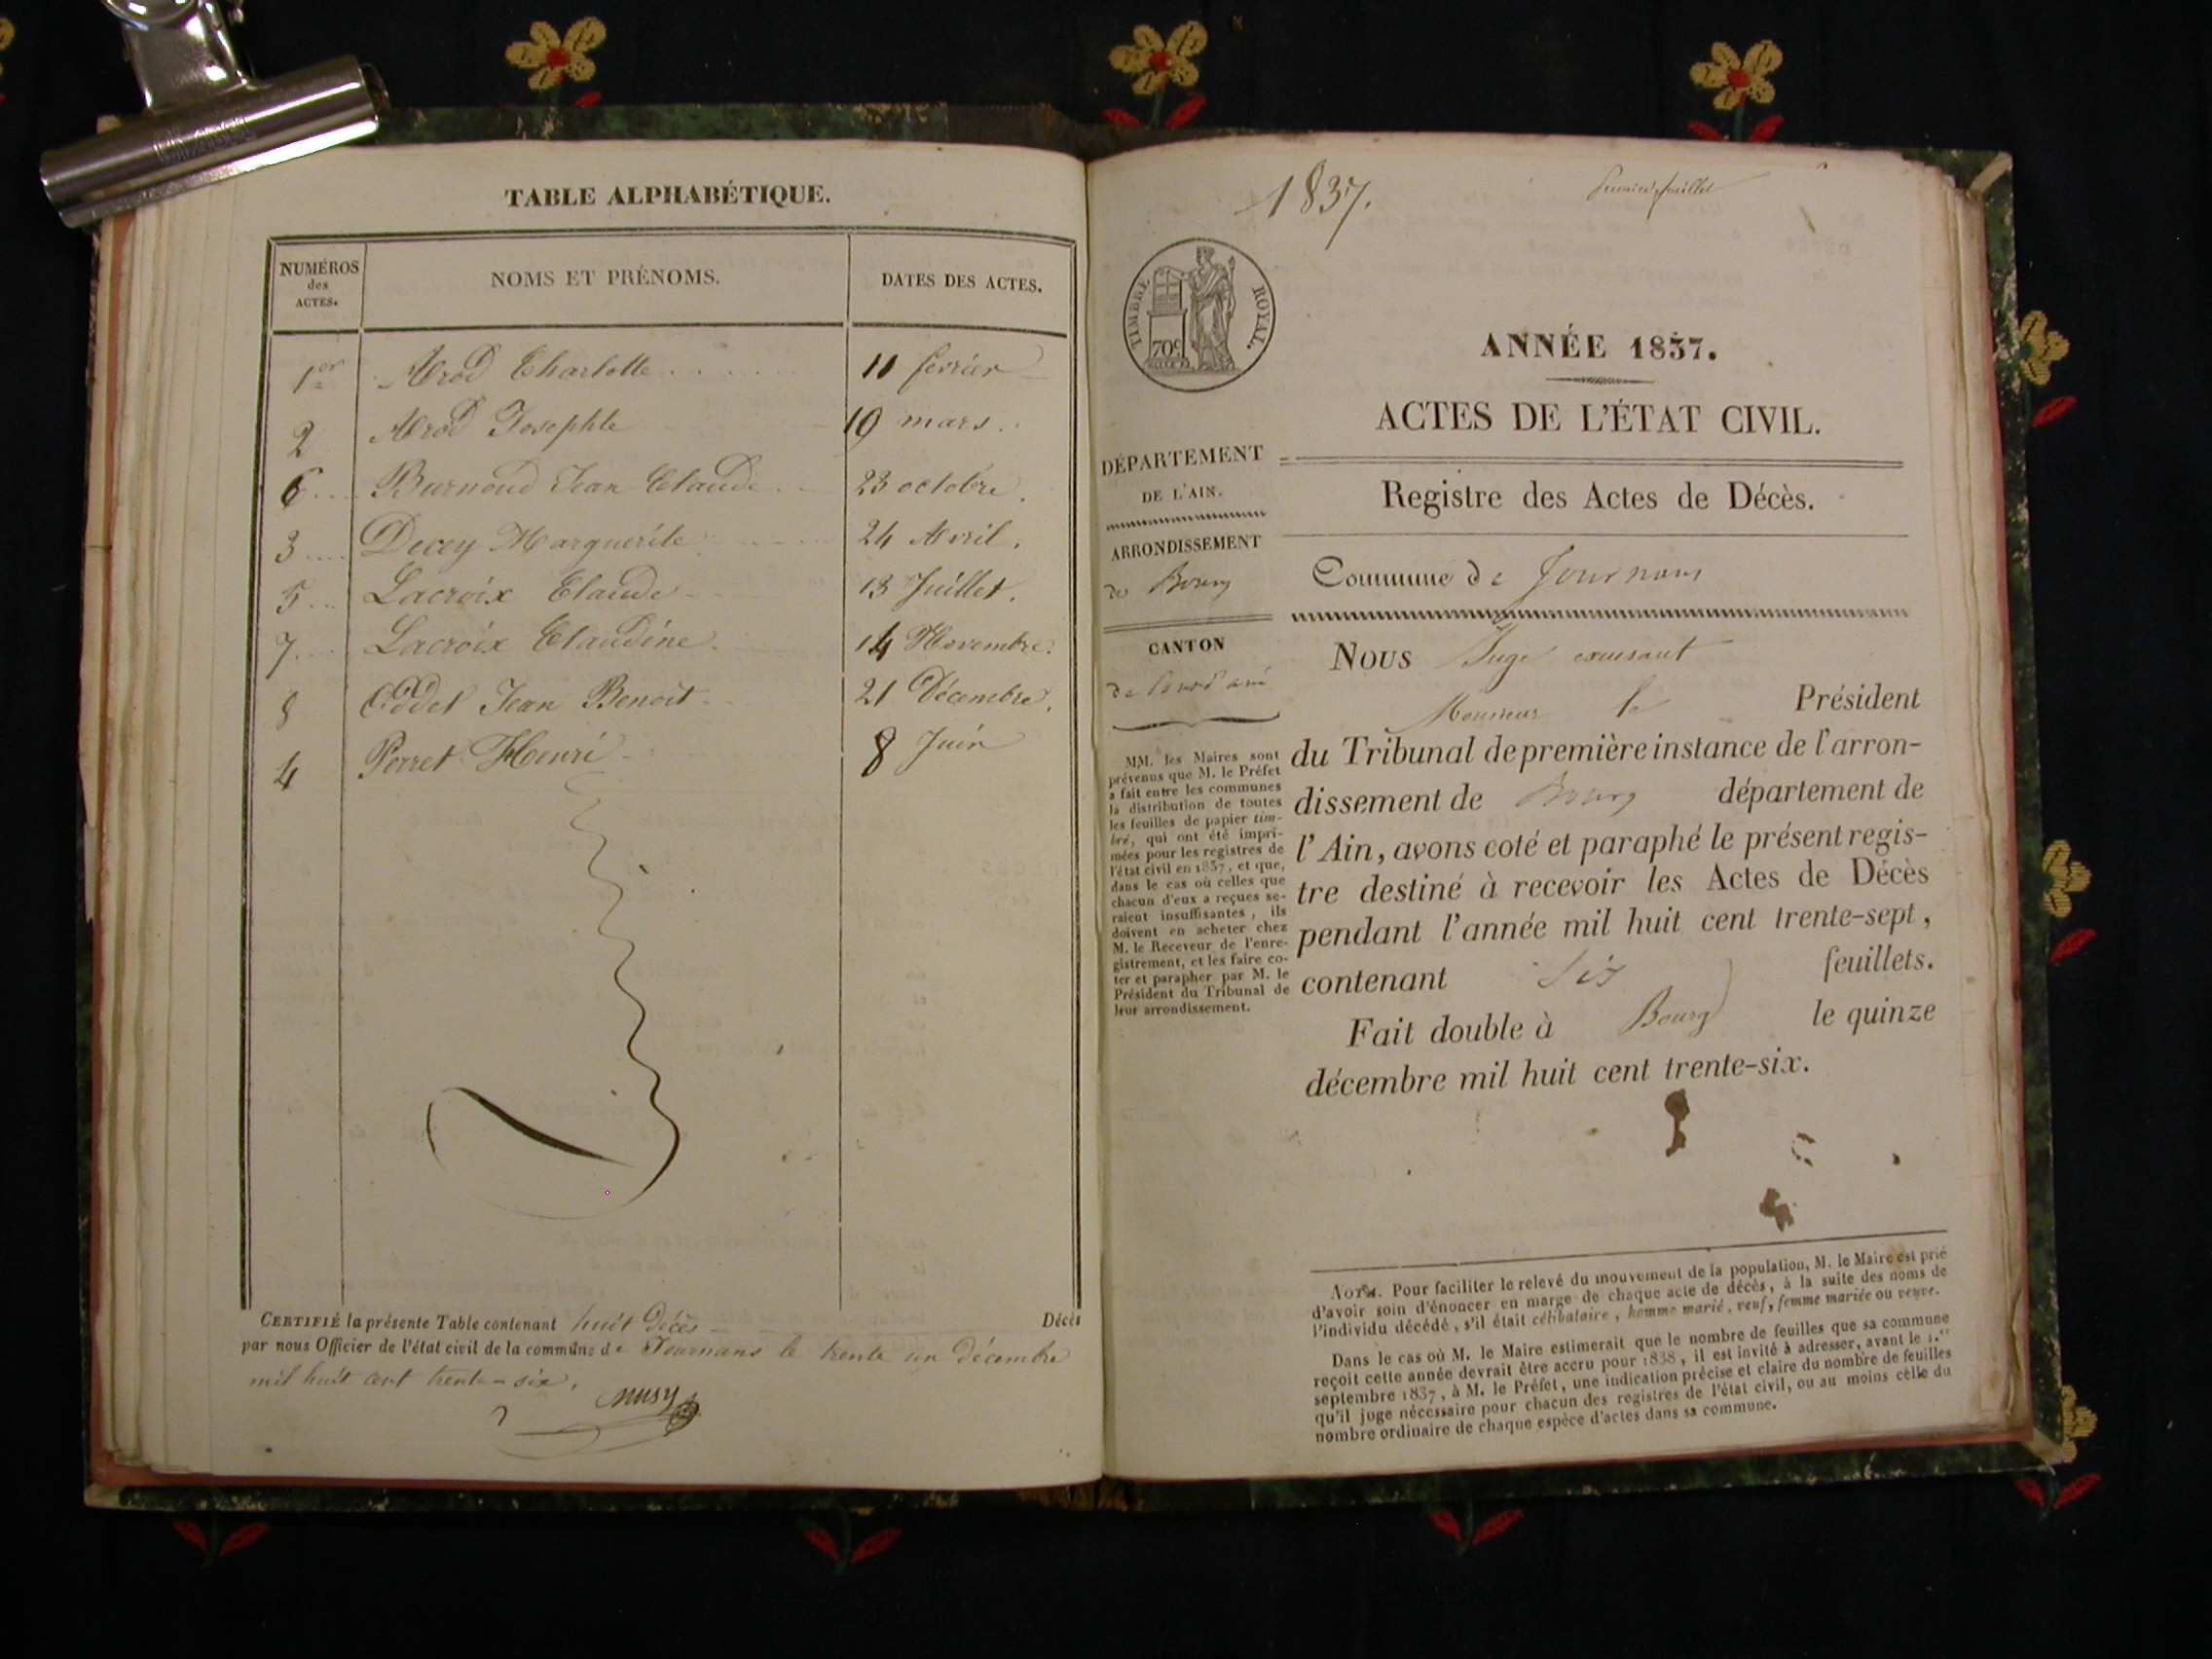 TABLE ALPHABÉTIQUE.
NUMÉROS
des
ACTES.
NOMS ET PRÉNOMS.
DATES DES ACTES.
1er Abrod Charlotte 11 février
2 Abrod Josephte 19 mars.
6 Burnoud Jean Claude 23 octobre.
3 Decey Marguerite 24 Avril.
5 Lacroix Claude 13 Juillet.
7 Lacroix Claudine 14 Novembre.
8 Oddet Jean Benoit 21 Décembre.
4 Perret Henri 8 Juin
CERTIFIÉ la présente Table contenant huit Décès Décès
par nous Officier de l'état civil de la commune de Journans le trente un décembre
mil huit cent trente-six.
Musy
1837.
premier feuillet
TIMBRE ROYAL.
70c
ANNÉE 1837.
ACTES DE L'ÉTAT CIVIL.
DÉPARTEMENT
DE L'AIN.
ARRONDISSEMENT
de Bourg
CANTON
de
Registre des Actes de Décès.
Commune de Journans
Nous Juge
Monsieur le Président
du Tribunal de première instance de l'arron-
dissement de Bourg département de
l'Ain, avons coté et paraphé le présent regis-
tre destiné à recevoir les Actes de Décès
pendant l'année mil huit cent trente-sept,
contenant Six feuillets.
Fait double à Bourg le quinze
décembre mil huit cent trente-six.
MM. les Maires sont
prévenus que M. le Préfet
a fait entre les communes
la distribution de toutes
les feuilles de papier tim-
bré, qui ont été impri-
mées pour les registres de
l'état civil en 1837, et que,
dans le cas où celles que
chacun d'eux a reçues se-
raient insuffisantes, ils
doivent en acheter chez
M. le Receveur de l'enre-
gistrement, et les faire co-
ter et parapher par M. le
Président du Tribunal de
leur arrondissement.
NOTA. Pour faciliter le relevé du mouvement de la population, M. le Maire est prié
d'avoir soin d'énoncer en marge de chaque acte de décès, à la suite des noms de
l'individu décédé, s'il était célibataire, homme marié, veuf, femme mariée ou veuve.
Dans le cas où M. le Maire estimerait que le nombre de feuilles que sa commune
reçoit cette année devrait être accru pour 1838, il est invité à adresser, avant le 1.er
septembre 1837, à M. le Préfet, une indication précise et claire du nombre de feuilles
qu'il juge nécessaire pour chacun des registres de l'état civil, ou au moins celle du
nombre ordinaire de chaque espèce d'actes dans sa commune.